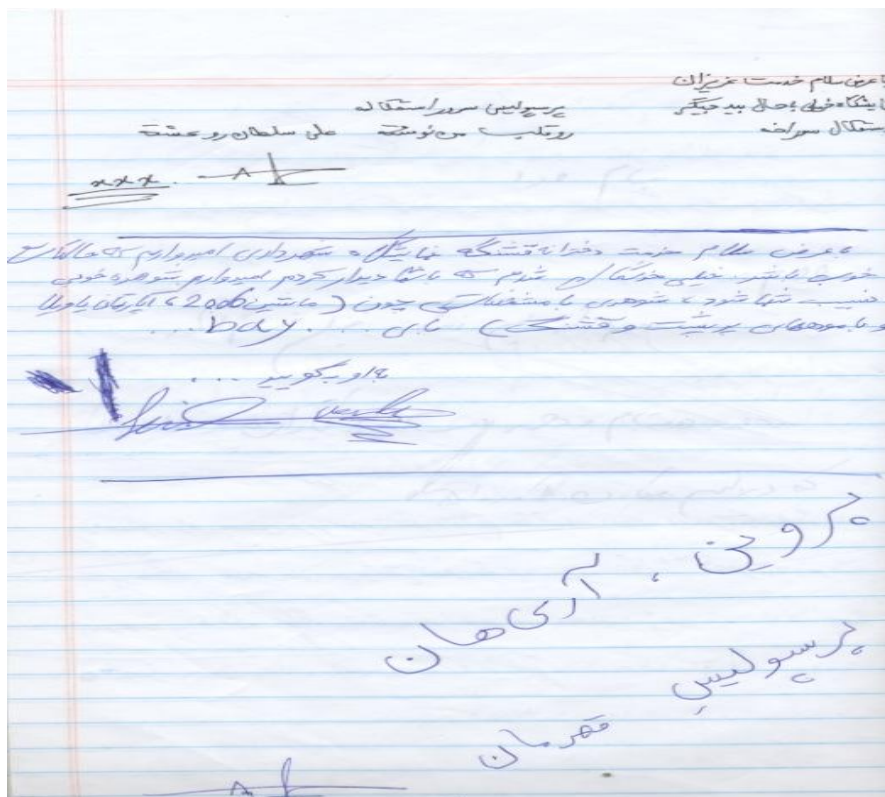 با عرض سلام خدمت عزیزان
پرسپولیس سرور استقلاله
رو قلب من نوشته علی سلطان رو عشقه
xxx
با عرض سلام خدمت دخترانه قشنگه نمایشگاه شهرداری امیدوارم که حالتان
خوب باشد. خیلی خوشحال شدم که با شما دیدار کردم امیدوارم شوهره خوبی
نصیب شما شود، شوهری با مشخصاتی چون (ماشین 206،
و با موهای پرپشت و قشنگ) بای .... bay ...
به او بگویید ...
پروین، آری هان
پرسپولیسِ قهرمان